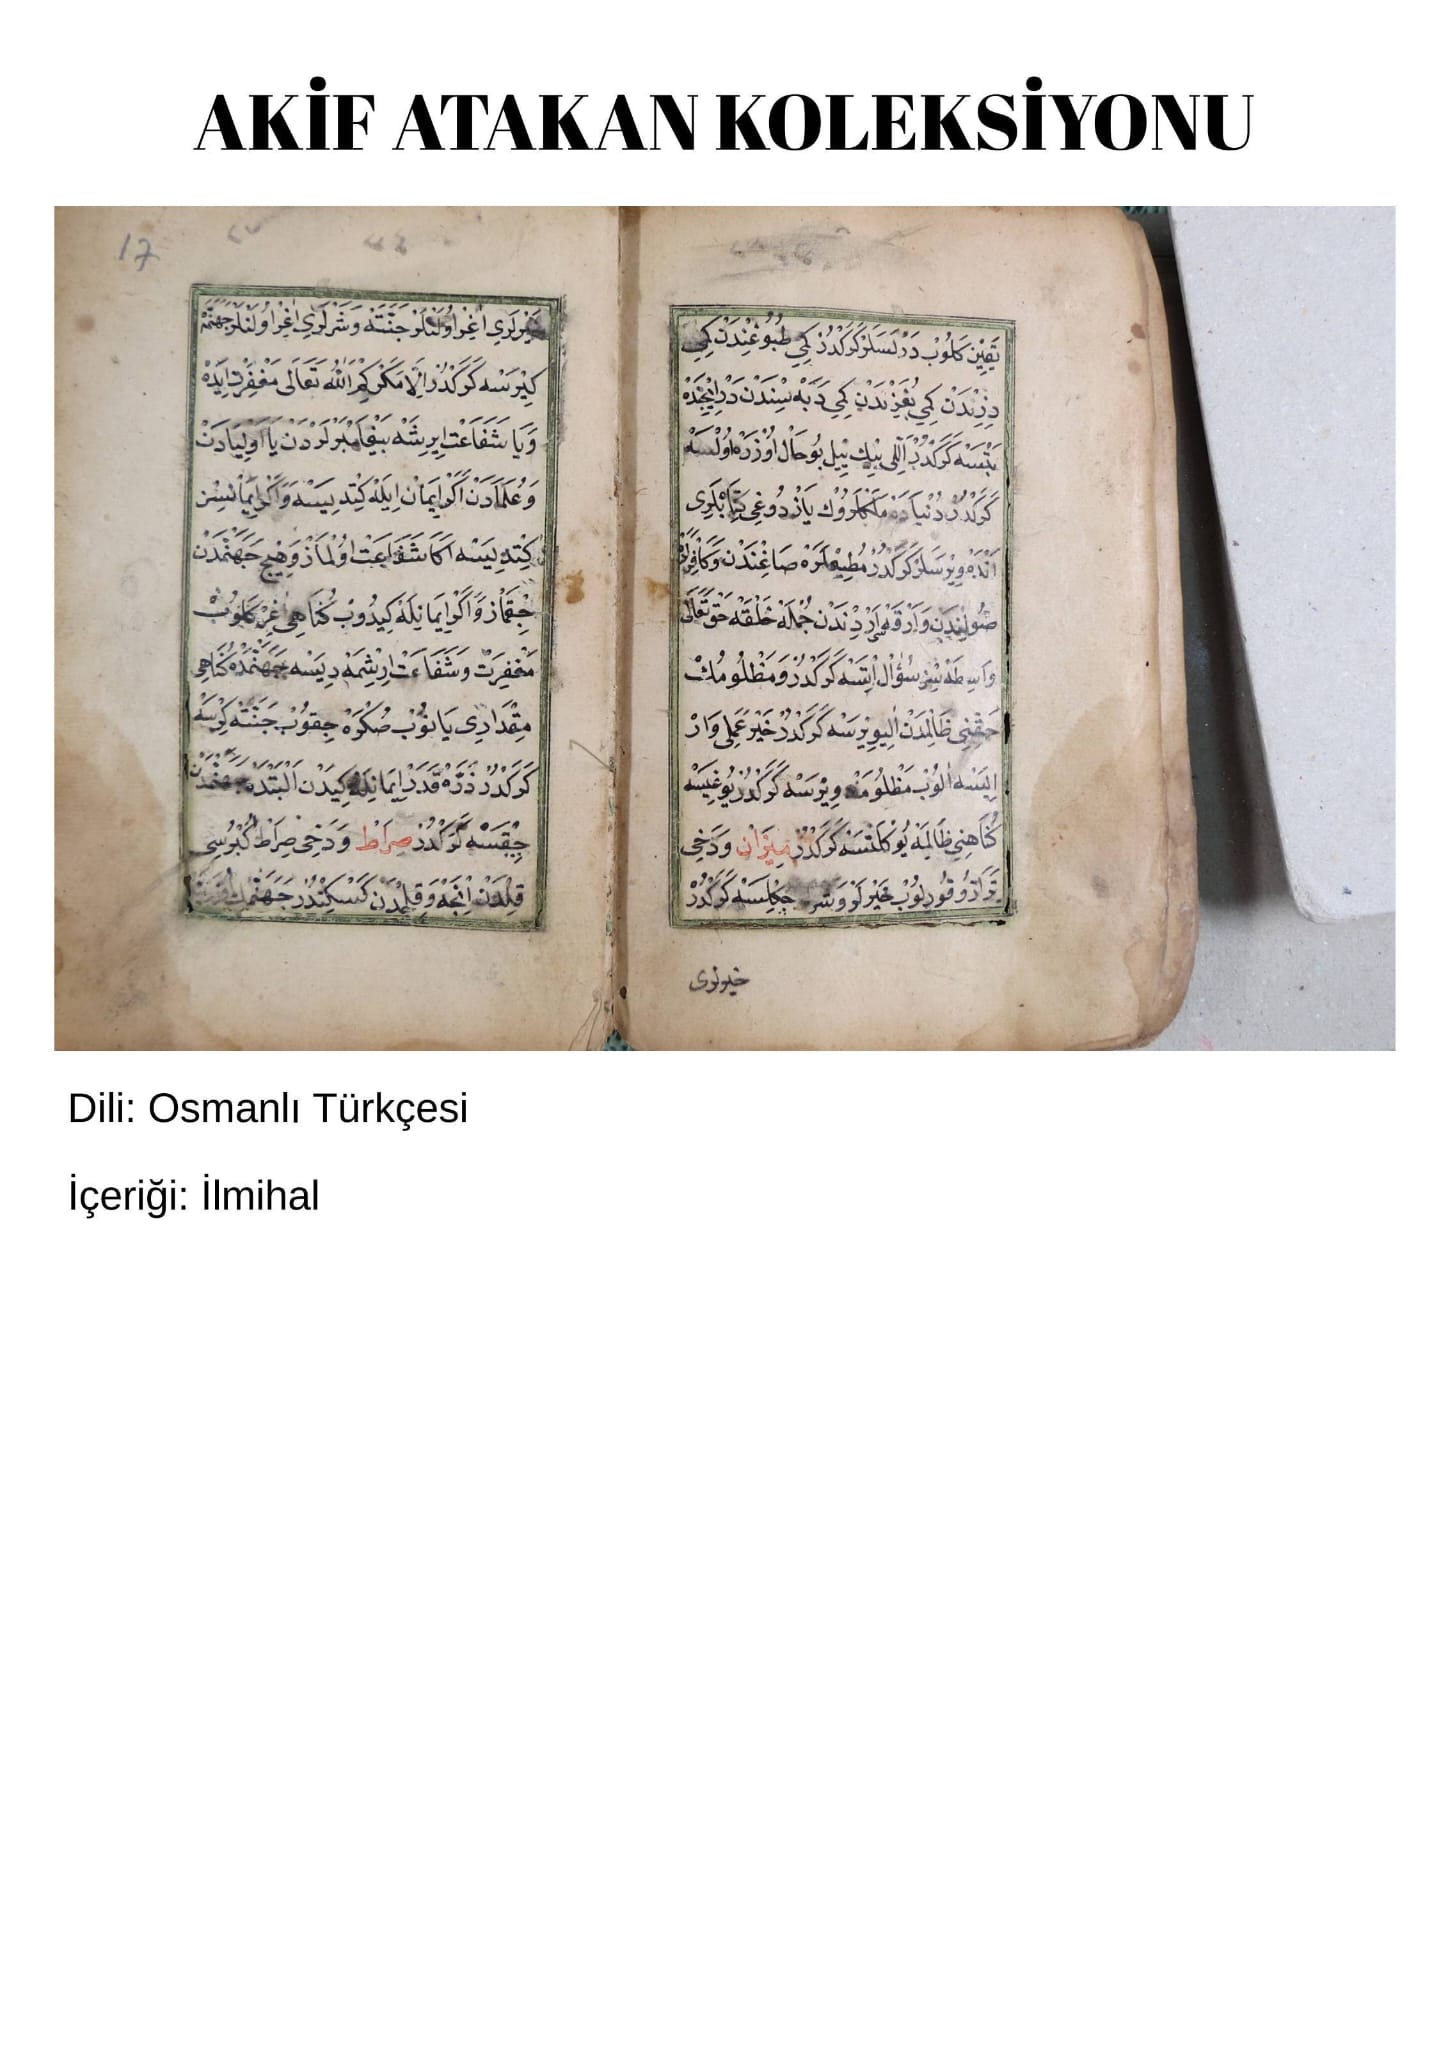 AKİF ATAKAN KOLEKSİYONU
يَقِينْ كَلُوبْ دَرْلَسَلَرْ كَرَكْدُرْ كِمِي طُبُوغِنْدَنْ كِمِي
دِزِنْدَنْ كِمِي بُغَزِنْدَنْ كِمِي دَپَهسِنْدَنْ دَرْ اِيچِنْدَه
بَتْسَه كَرَكْدُرْ اَللِّي بِيكْ يِيلْ بُو حَالْ اُوزَرَه اُولْسَه
كَرَكْدُرْ دُنْيَادَه مَلَكْلَرُوكْ يَازْدُوغِي كِتَابْلَرِي
اَنْدَه وِيرْسَلَرْ كَرَكْدُرْ مُطِيعْلَرَه صَاغِنْدَنْ وَكَافِرْلَرَه
صُولِنْدَنْ وَارْقَهسِي اَرْدِنْدَنْ جُمْلَه خَلْقَه حَقْ تَعَالَى
وَاسِطَهسِزْ سُؤَالْ اِتْسَه كَرَكْدُرْ وَمَظْلُومُكْ
حَقِّنِي ظَالِمْدَنْ اَلِيوِيرْسَه كَرَكْدُرْ خَيْرْ عَمَلِي وَارْ
اِيسَه اَلُوبْ مَظْلُومَه وِيرْسَه كَرَكْدُرْ يُوغِيسَه
كُنَاهِنِي ظَالِمَه يُوكْلَتْسَه كَرَكْدُرْ مِيزَانْ وَدَخِي
تَرَازُو قُورِلُوبْ خَيْرْلَرْ وَشَرْلَرْ چَكِلْسَه كَرَكْدُرْ
خيرلری
17
خَيْرْلَرِي اَغِرْ اُولَنْلَرْ جَنَّتَه وَشَرْلَرِي اَغِرْ اُولَنْلَرْ جَهَنَّمَه
كِيرْسَه كَرَكْدُرْ اِلَّا مَكَرْ كِمْ اَللّٰهُ تَعَالَى مَغْفِرَتْ اِيدَه
وَيَا شَفَاعَتْ اِيرِشَه پَيْغَامْبَرْلَرْدَنْ يَا اَوْلِيَادَنْ
وَعُلَمَادَنْ اَكَرْ اِيمَانْ اِيلَه كِتْدِييسَه وَاَكَرْ اِيمَانْسِزْ
كِتْدِييسَه اَكَا شَفَاعَتْ اُولْمَازْ وَهِيچْ جَهَنَّمْدَنْ
چِقْمَازْ وَاَكَرْ اِيمَانِلَه كِيدُوبْ كُنَاهِي اَغِرْ كَلُوبْ
مَغْفِرَتْ وَشَفَاعَتْ اِرِشْمَدِيسَه جَهَنَّمْدَه كُنَاهِي
مِقْدَارِي يَانُوبْ صُكْرَه چِقُوبْ جَنَّتَه كِرْسَه
كَرَكْدُرْ ذَرَّه قَدَرْ اِيمَانِلَه كِيدَنْ اَلْبَتَّدَه جَهَنَّمْدَنْ
چِقْسَه كَرَكْدُرْ صِرَاطْ وَدَخِي صِرَاطْ كُپْرُسِي
قِلْدَنْ اِنْجَه وَقِلِجْدَنْ كَسْكِنْدُرْ جَهَنَّمُكْ اُوزَرِنْدَه
Dili: Osmanlı Türkçesi
İçeriği: İlmihal